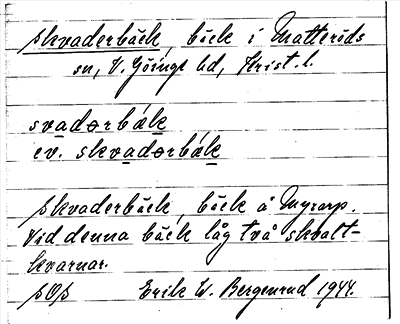 skvaderbäck, bäck i Matteröds
sn, V. Göinge hd, Krist. l.
svadərbæk
ev. skvadərbæk
skvaderbäck, bäck å Myrarp.
Vid denna bäck låg två skvalt-
kvarnar.
Erik W. Bergenrud 1944.